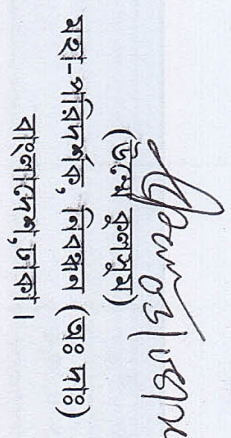 (উম্মে কুলসুম)
মহা-পরিদর্শক, নিবন্ধন (অঃ দাঃ)
বাংলাদেশ, ঢাকা।